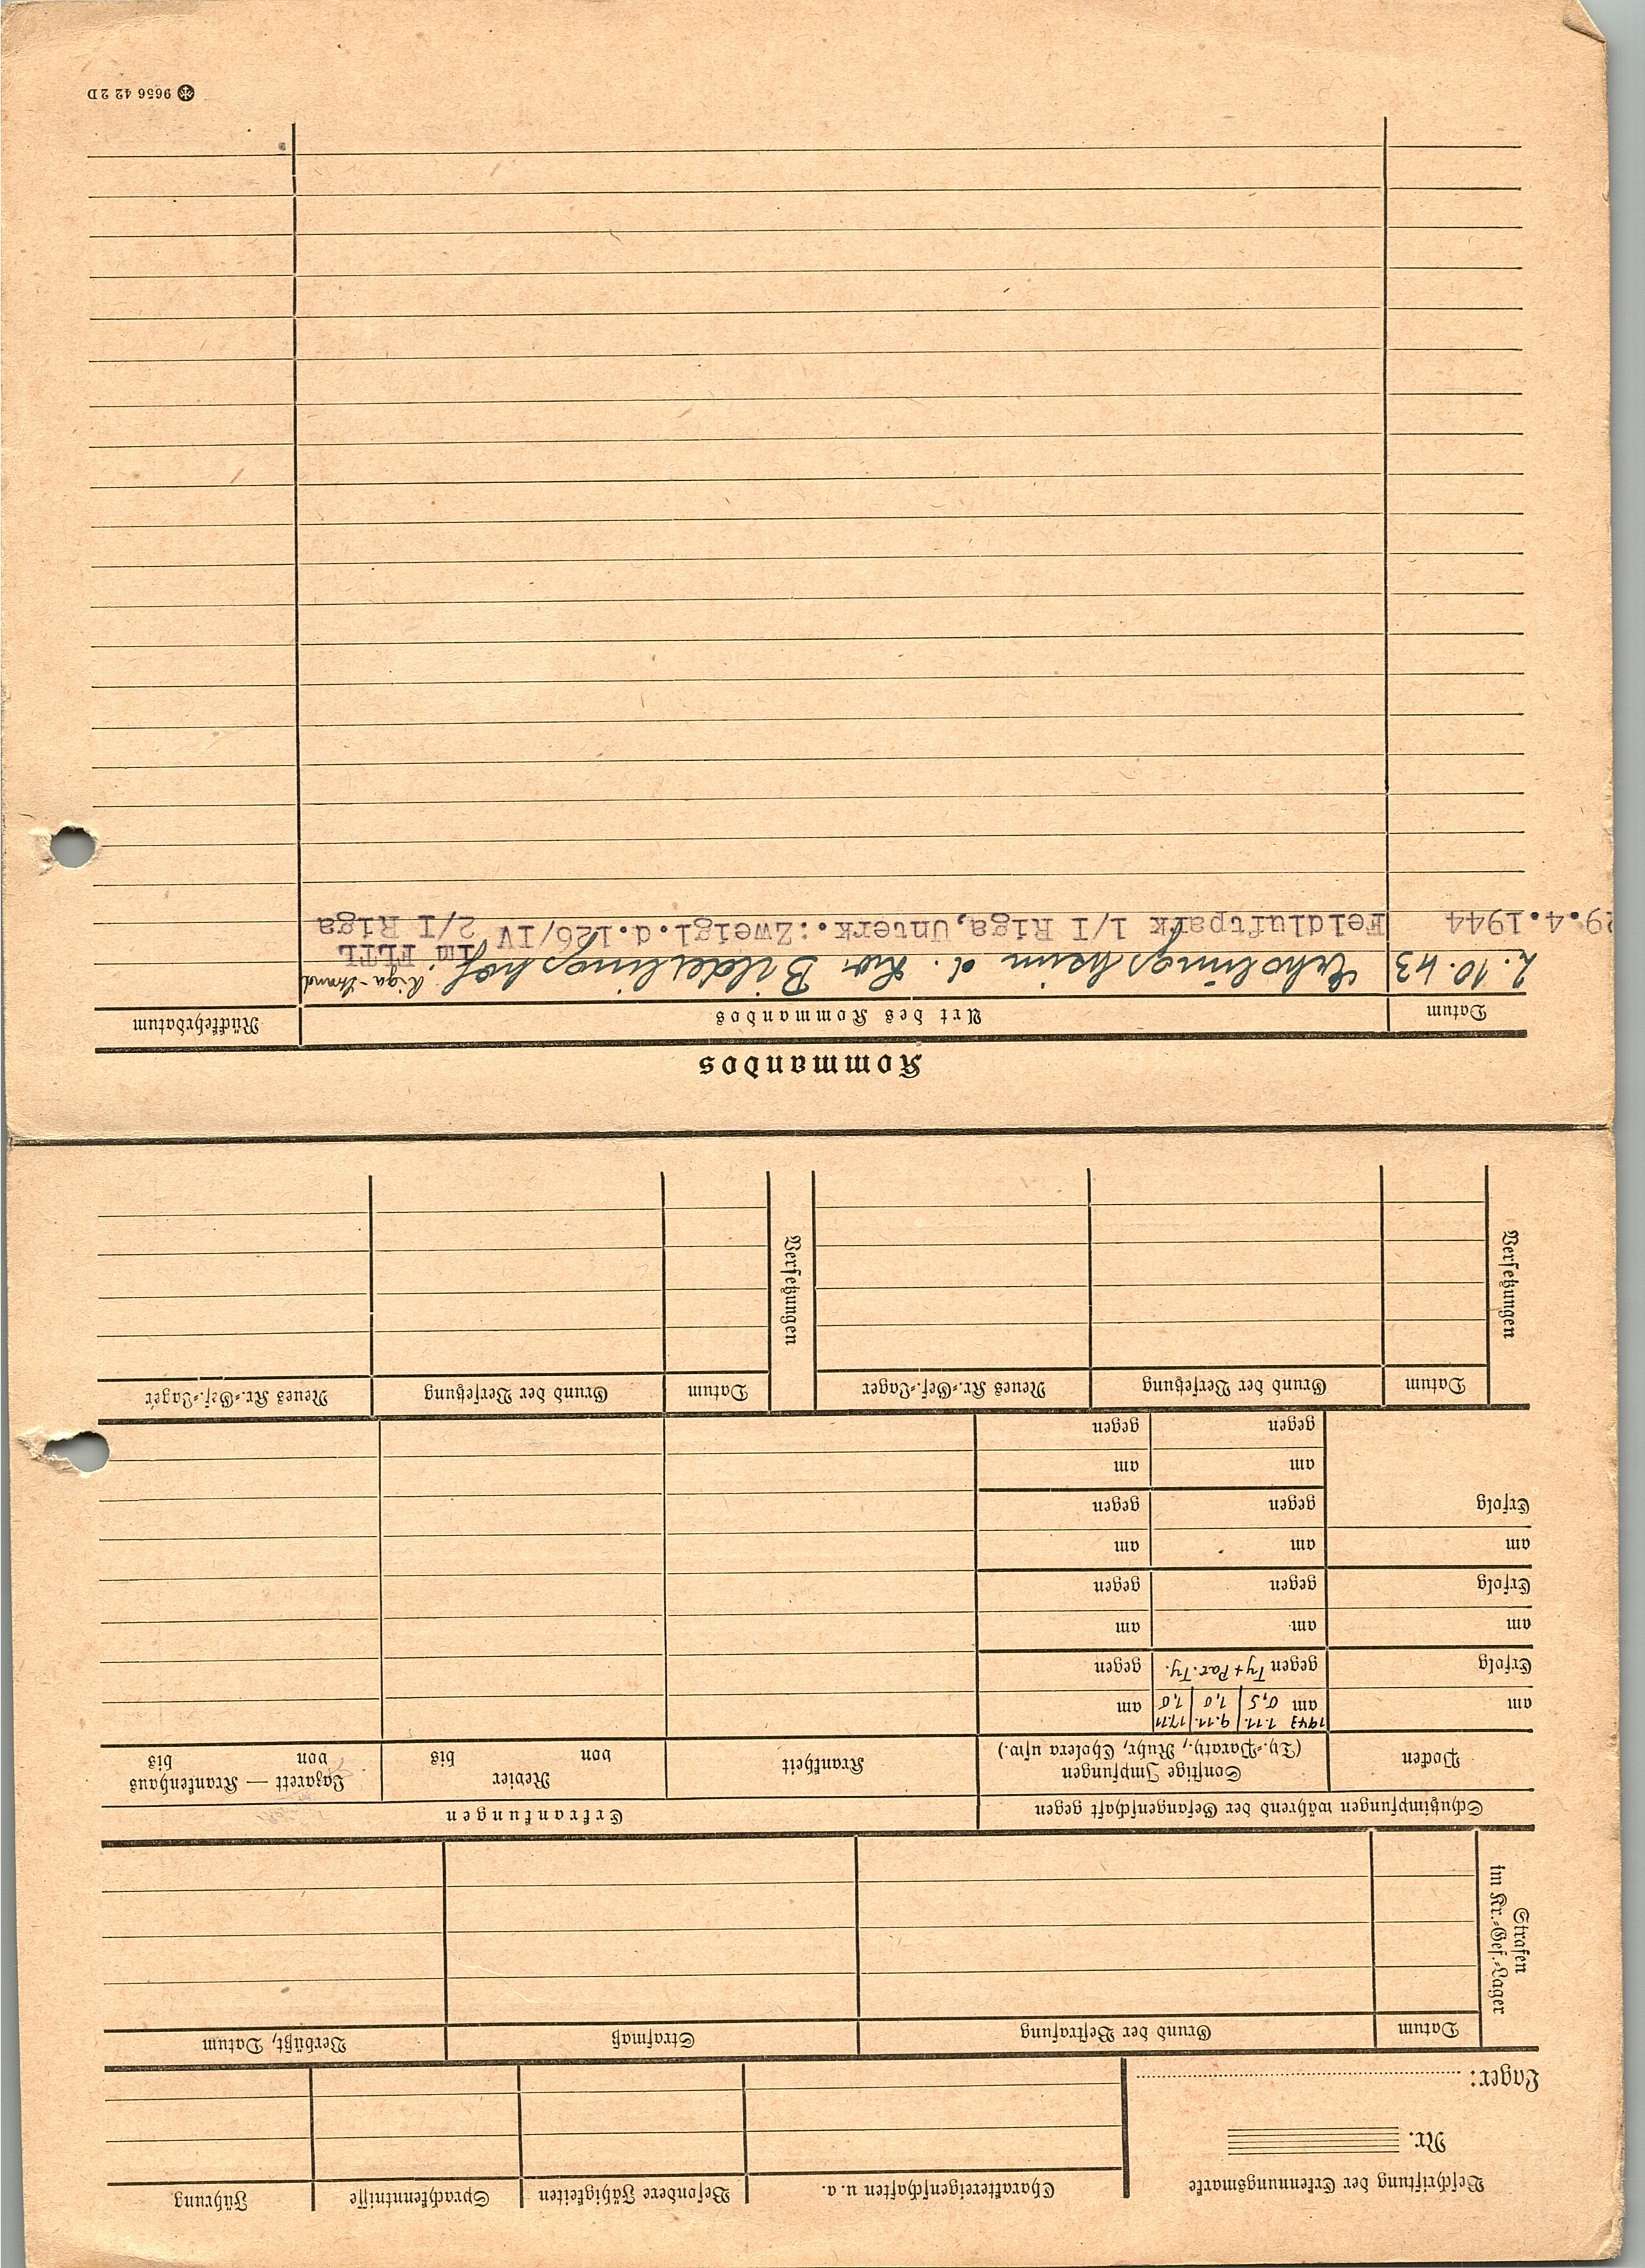 Beschriftung der Erkennungsmarke
Nr.
Lager:
Charaktereigenschaften u. a.
Besondere Fähigkeiten
Sprachkenntnisse
Führung
Strafen
im Kr.-Gef.-Lager
Datum
Grund der Bestrafung
Strafmaß
Verbüßt, Datum
Schutzimpfungen während der Gefangenschaft gegen
Erkrankungen
Pocken
Sonstige Impfungen
(Ty.-Paraty., Ruhr, Cholera usw.)
Krankheit
Revier
von bis
Lazarett — Krankenhaus
von bis
am
Erfolg
am
Erfolg
am
Erfolg
1943 1.11. 9.11. 17.11
am 0,5 1,0 1,0
gegen Ty + Par. Ty.
am
gegen
am
gegen
am
gegen
am
gegen
am
gegen
am
gegen
am
gegen
Versetzungen
Datum
Grund der Versetzung
Neues Kr.-Gef.-Lager
Versetzungen
Datum
Grund der Versetzung
Neues Kr.-Gef.-Lager
Kommandos
Datum
Art des Kommandos
Rückkehrdatum
2.10.43 Erholungsheim d. Bilderlingshof Riga-Strand
im FLTL
29.4.1944 Feldluftpark 1/I Riga, Unterk.: Zweigl.d.126/IV 2/I Riga
9656 42 2D